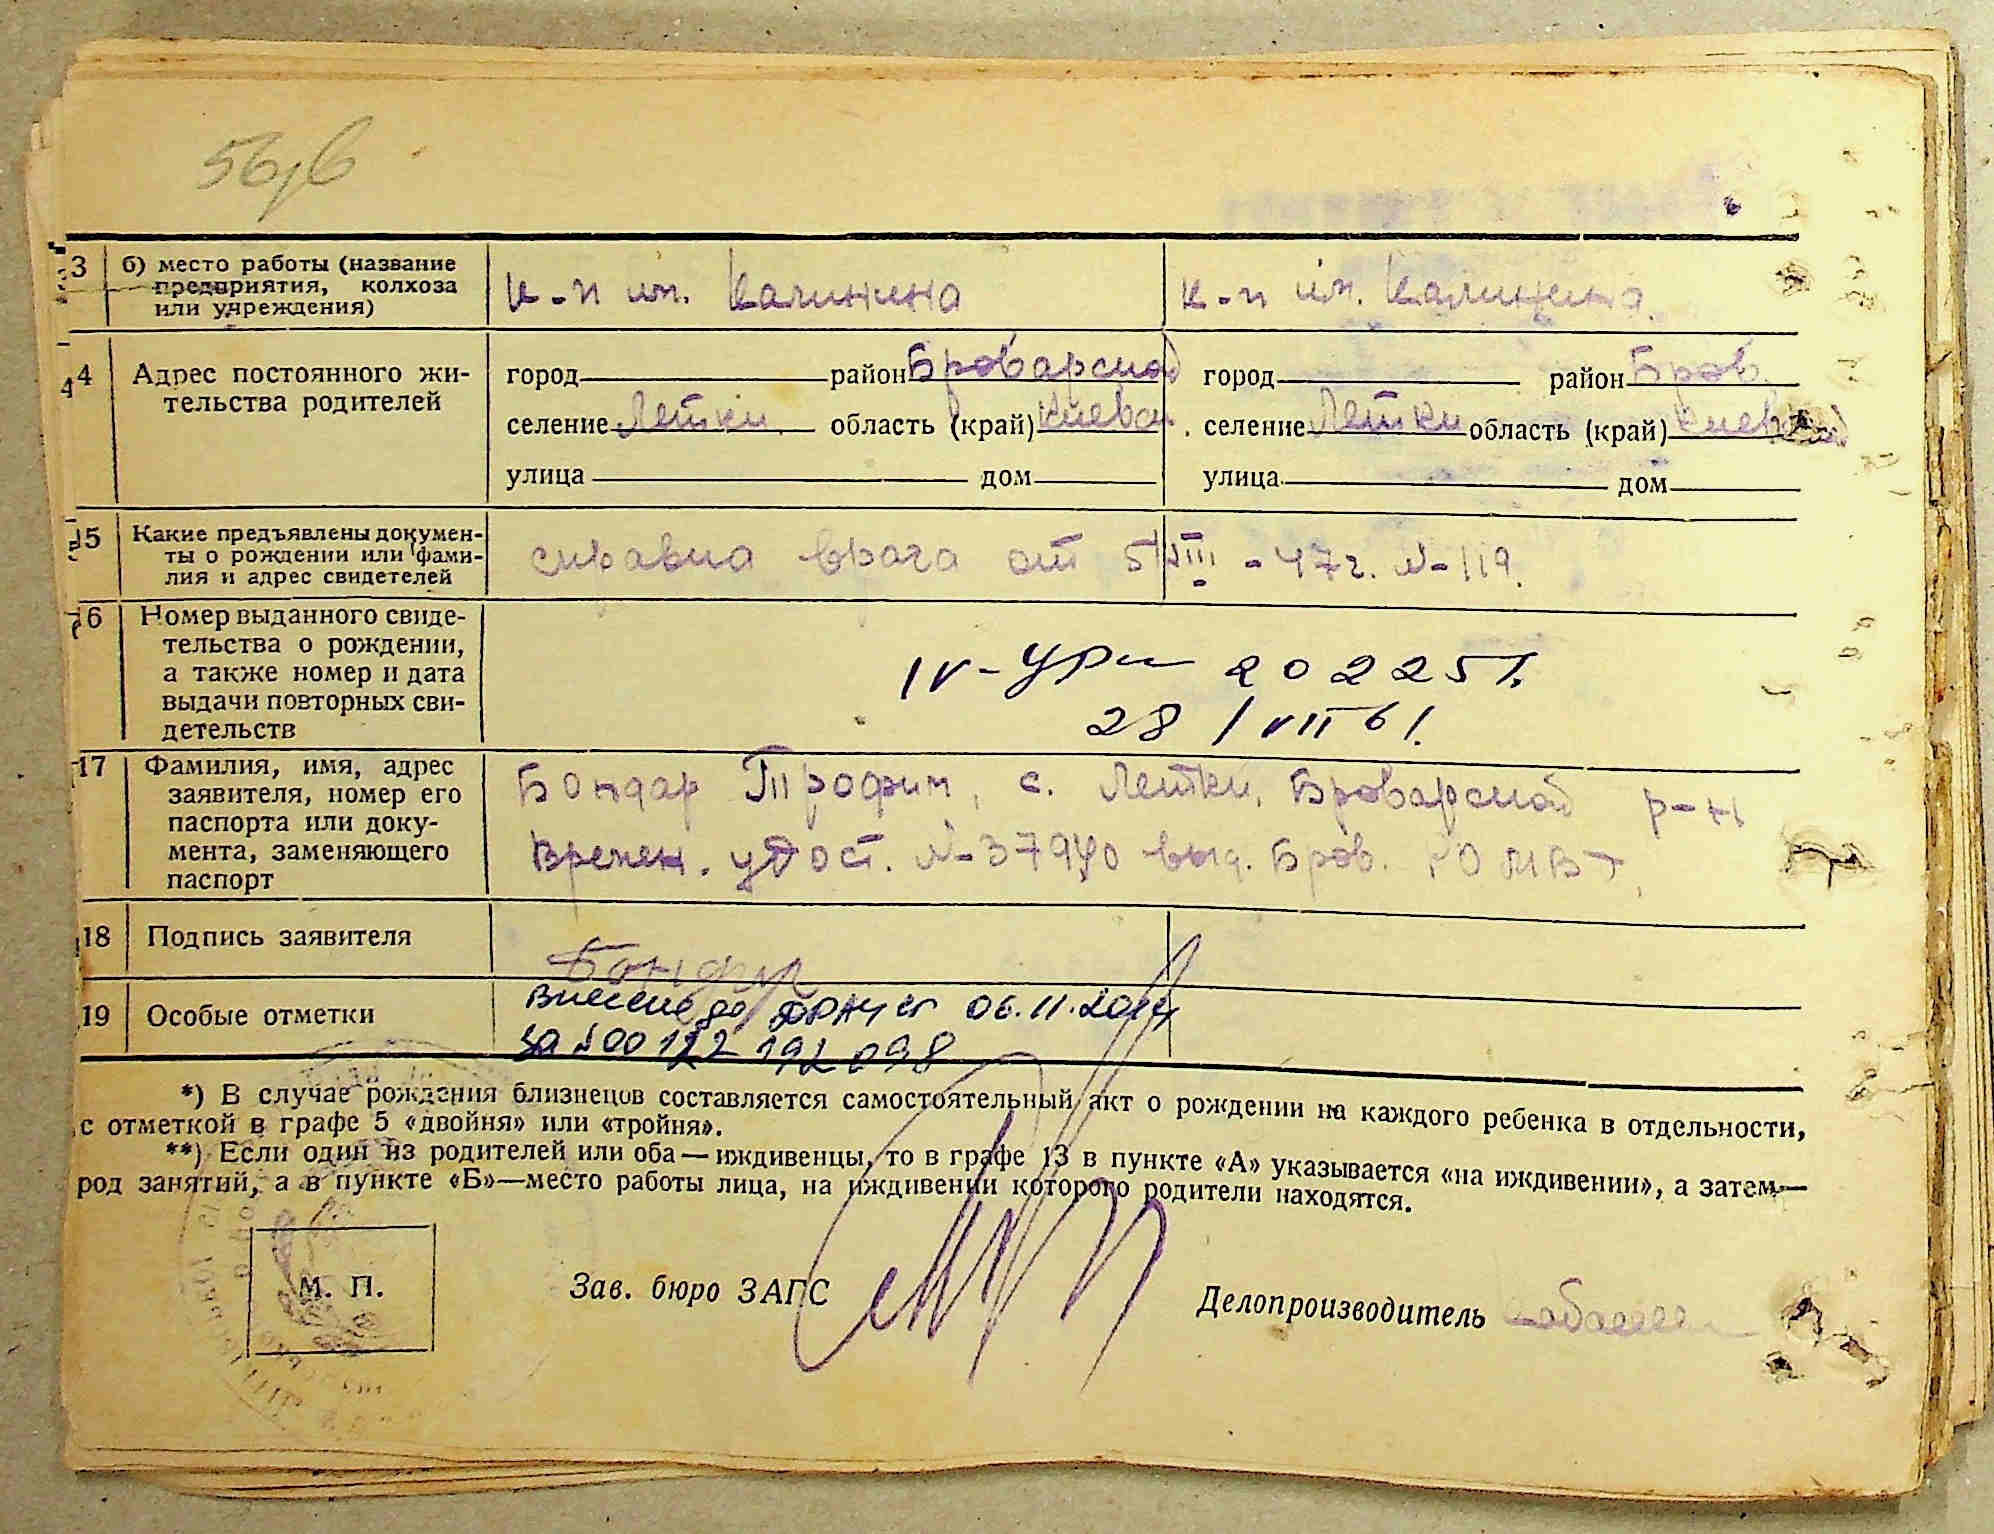 13 б) место работы (название предприятия, колхоза или учреждения) к-п им. Калинина к-п им. Калинина.
14 Адрес постоянного жительства родителей
город район Броварской город район Бров.
селение Летки область (край) Киевск. селение Летки область (край) Киевской
улица дом улица дом
15 Какие предъявлены документы о рождении или фамилия и адрес свидетелей справка врача от 5/VIII - 47 г. №-119.
16 Номер выданного свидетельства о рождении, а также номер и дата выдачи повторных свидетельств
IV-УРи 202251.
28/VII 61.
17 Фамилия, имя, адрес заявителя, номер его паспорта или документа, заменяющего паспорт
Бондар Трофим, с. Летки, Броварской р-н
Времен. удост. №-37940 выд. Бров. РОМВД
18 Подпись заявителя Бондар
19 Особые отметки Внесено до ДРАЦСГ 06.11.2014
за №00122192098
*) В случае рождения близнецов составляется самостоятельный акт о рождении на каждого ребенка в отдельности,
с отметкой в графе 5 «двойня» или «тройня».
**) Если один из родителей или оба — иждивенцы, то в графе 13 в пункте «А» указывается «на иждивении», а затем —
род занятий, а в пункте «Б»—место работы лица, на иждивении которого родители находятся.
М. П.
Зав. бюро ЗАГС
Делопроизводитель